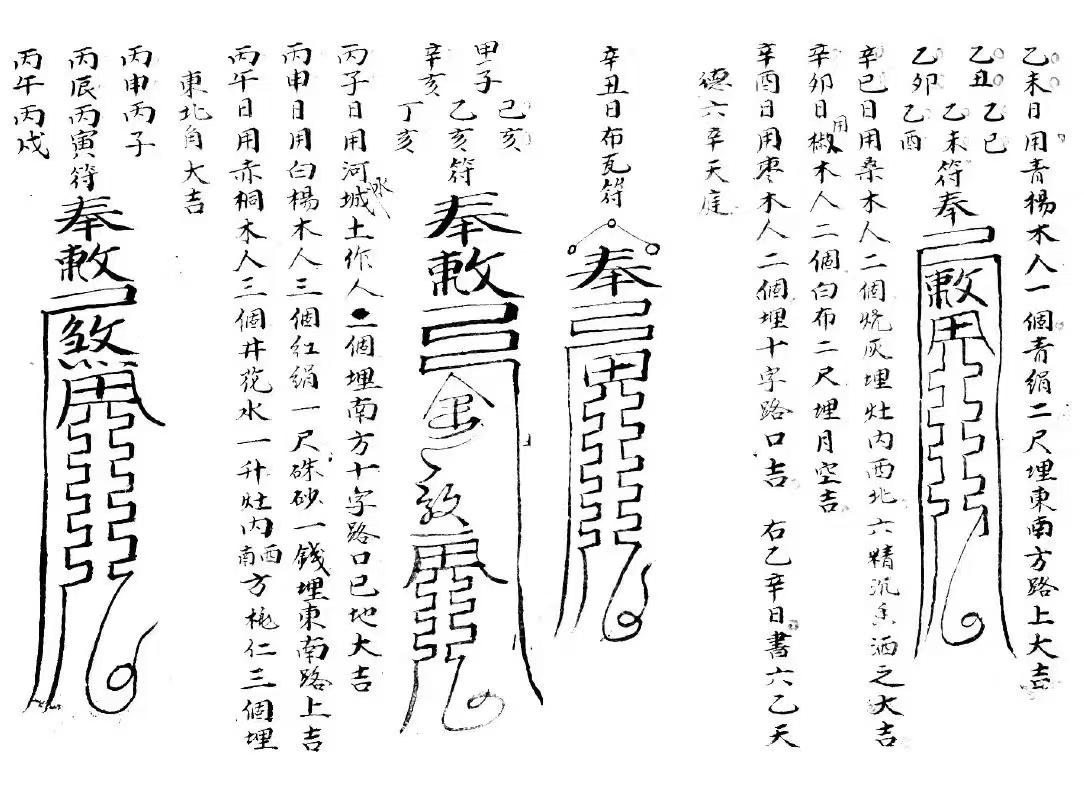 乙未日用青楊木人一個青絹二尺埋東南方路上大吉
乙丑 乙巳
乙卯 乙未符
乙酉
奉
敕
辛巳日用桑木人二個燒灰埋灶內西北六精沉香酒之大吉
辛卯日用椒木人二個白布二尺埋月空吉
辛酉日用枣木人二個埋十字路口吉 右乙辛日書六乙天
德六辛天庭
辛丑日布瓦符
奉
甲子 己亥
辛亥 乙亥符
丁亥
奉敕
丙子日用河城水土作人二個埋南方十字路口巳地大吉
丙申日用白楊木人三個紅絹一尺硃砂一錢埋東南路上吉
丙午日用赤桐木人三個井花水一升灶內西南方桃仁三個埋
東北角大吉
丙申丙子
丙辰丙寅符
丙午丙戌
奉敕
煞